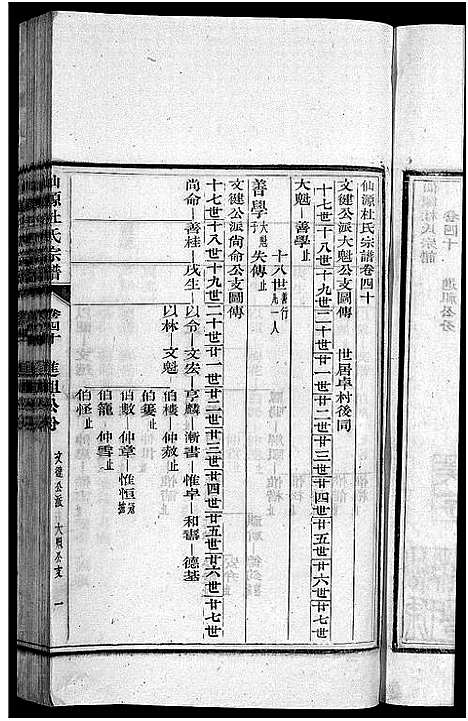 仙源杜氏宗譜卷四十
文健公派大魁公支圖傳　世居卓村後同
十七世十八世十九世二十世廿一世廿二世廿三世廿四世廿五世廿六世廿七世
大魁―善學止
十八世善行九一人
善學大魁子失傳止
文健公派尚命公支圖傳
十七世十八世十九世二十世廿一世廿二世廿三世廿四世廿五世廿六世廿七世
尚命―善桂―戌生―以令―文宏―亨麟―漸書―惟卓―和書―德基
以林―文魁
伯樓―仲敖止
伯養止
伯數　仲章―惟恒
伯龍　仲雪止
伯怪止
仙源杜氏宗譜
卷四十
進祖公分
文健公派　大魁公支
一
卷四十
進祖公分
仙源杜氏宗譜